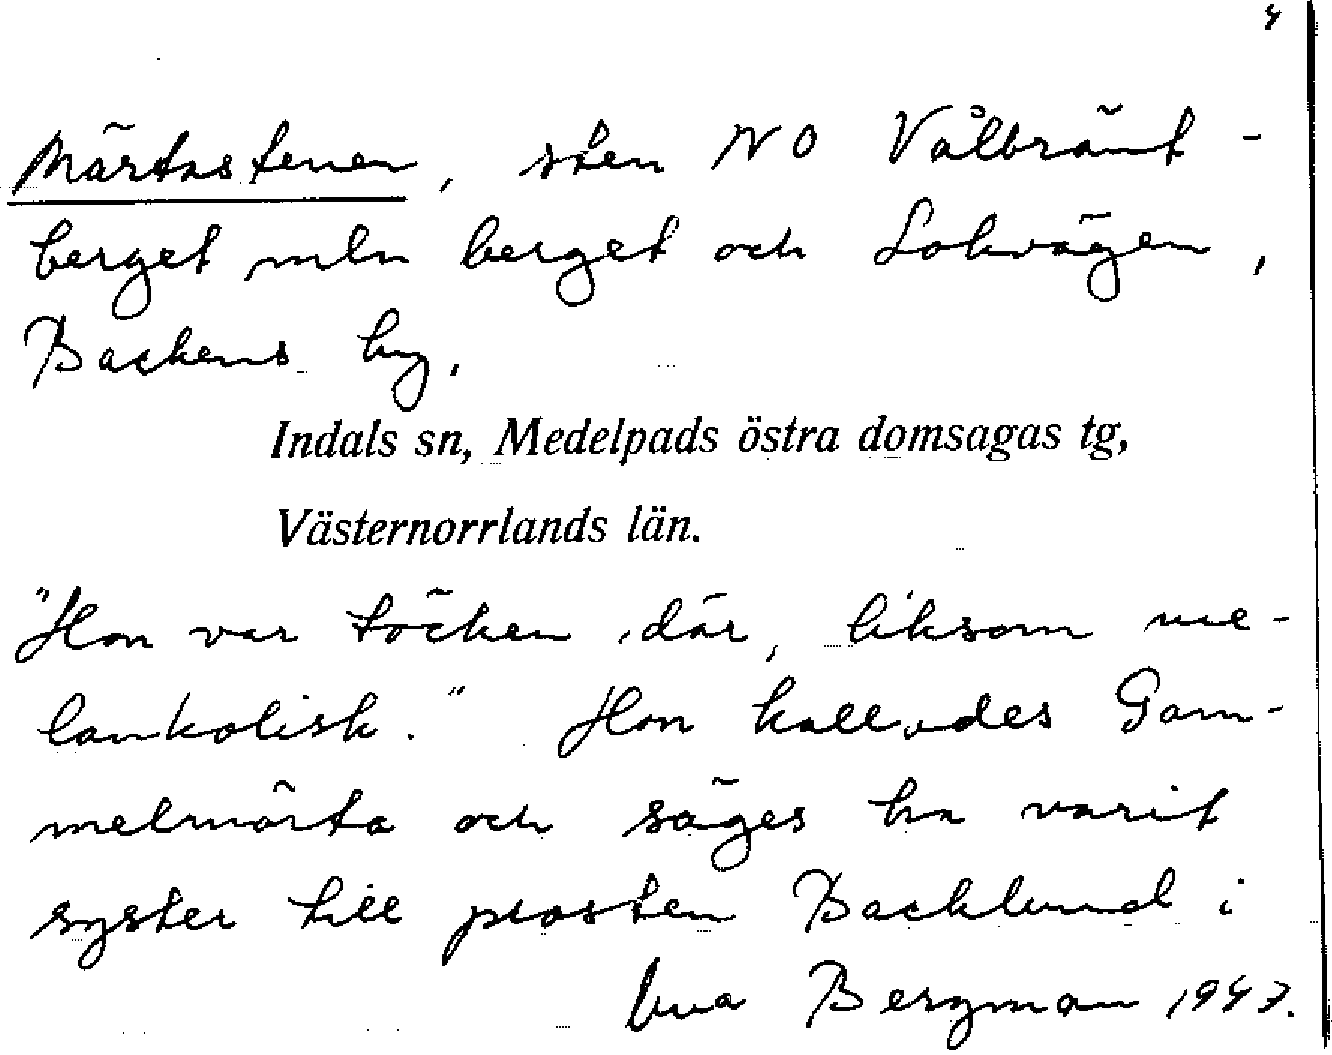 Märtastenen, sten NO Vålbränt-
berget mln berget och Lokvägen,
Backens by.
Indals sn, Medelpads östra domsagas tg,
Västernorrlands län.
"Hon var töcken där, liksom me-
lankolisk." Hon kallades Gam-
melmärta och säges ha varit
syster till prosten Backlund i
Bergman 1943.